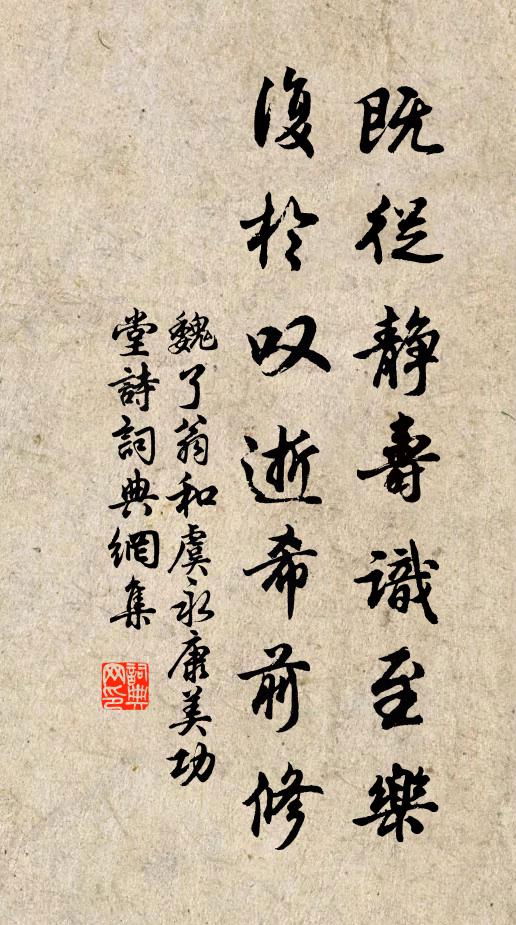 既從靜壽識至樂
復於叹逝希前修
魏了翁和虞永康美功
堂詩詞典網集
詞典网印